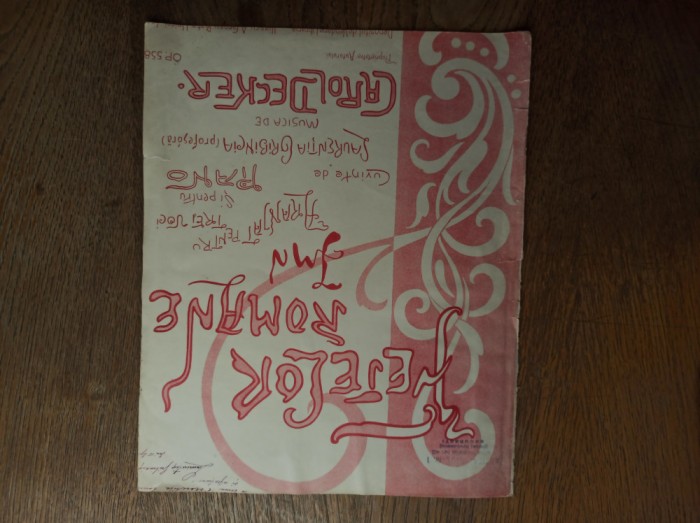 FETELOR
ROMANE
IMN
ARANJAT PENTRU
TREI VOCI
Și pentru
PIANO
Cuvinte de
LAURENȚIA GRIBINCIA (profesară)
MUSICA DE
CAROL DECKER.
OP. 558